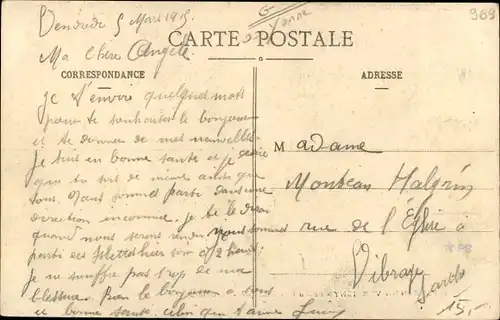 Vendredi 5 Mars 1915
Yonne
969
Ma chère Angèle
CARTE POSTALE
CORRESPONDANCE
ADRESSE
Je t'envoie quelques mots
pour te souhaiter le bonjour
et te donner de mes nouvelles
je suis en bonne santé et je désire
que tu sois de même ainsi que
tous. nous sommes partis dans une
direction inconnue. je te le dirai
quand nous serons rendu nous sommes
parti de hier soir à 2 heures
je ne souffre pas trop de ma
blessure. Bien le bonjour à tous
et bonne santé. celui qui t'aime
Madame
Monteau Halgrin
rue de l'Église à
Vibraye
Sarthe
15,-